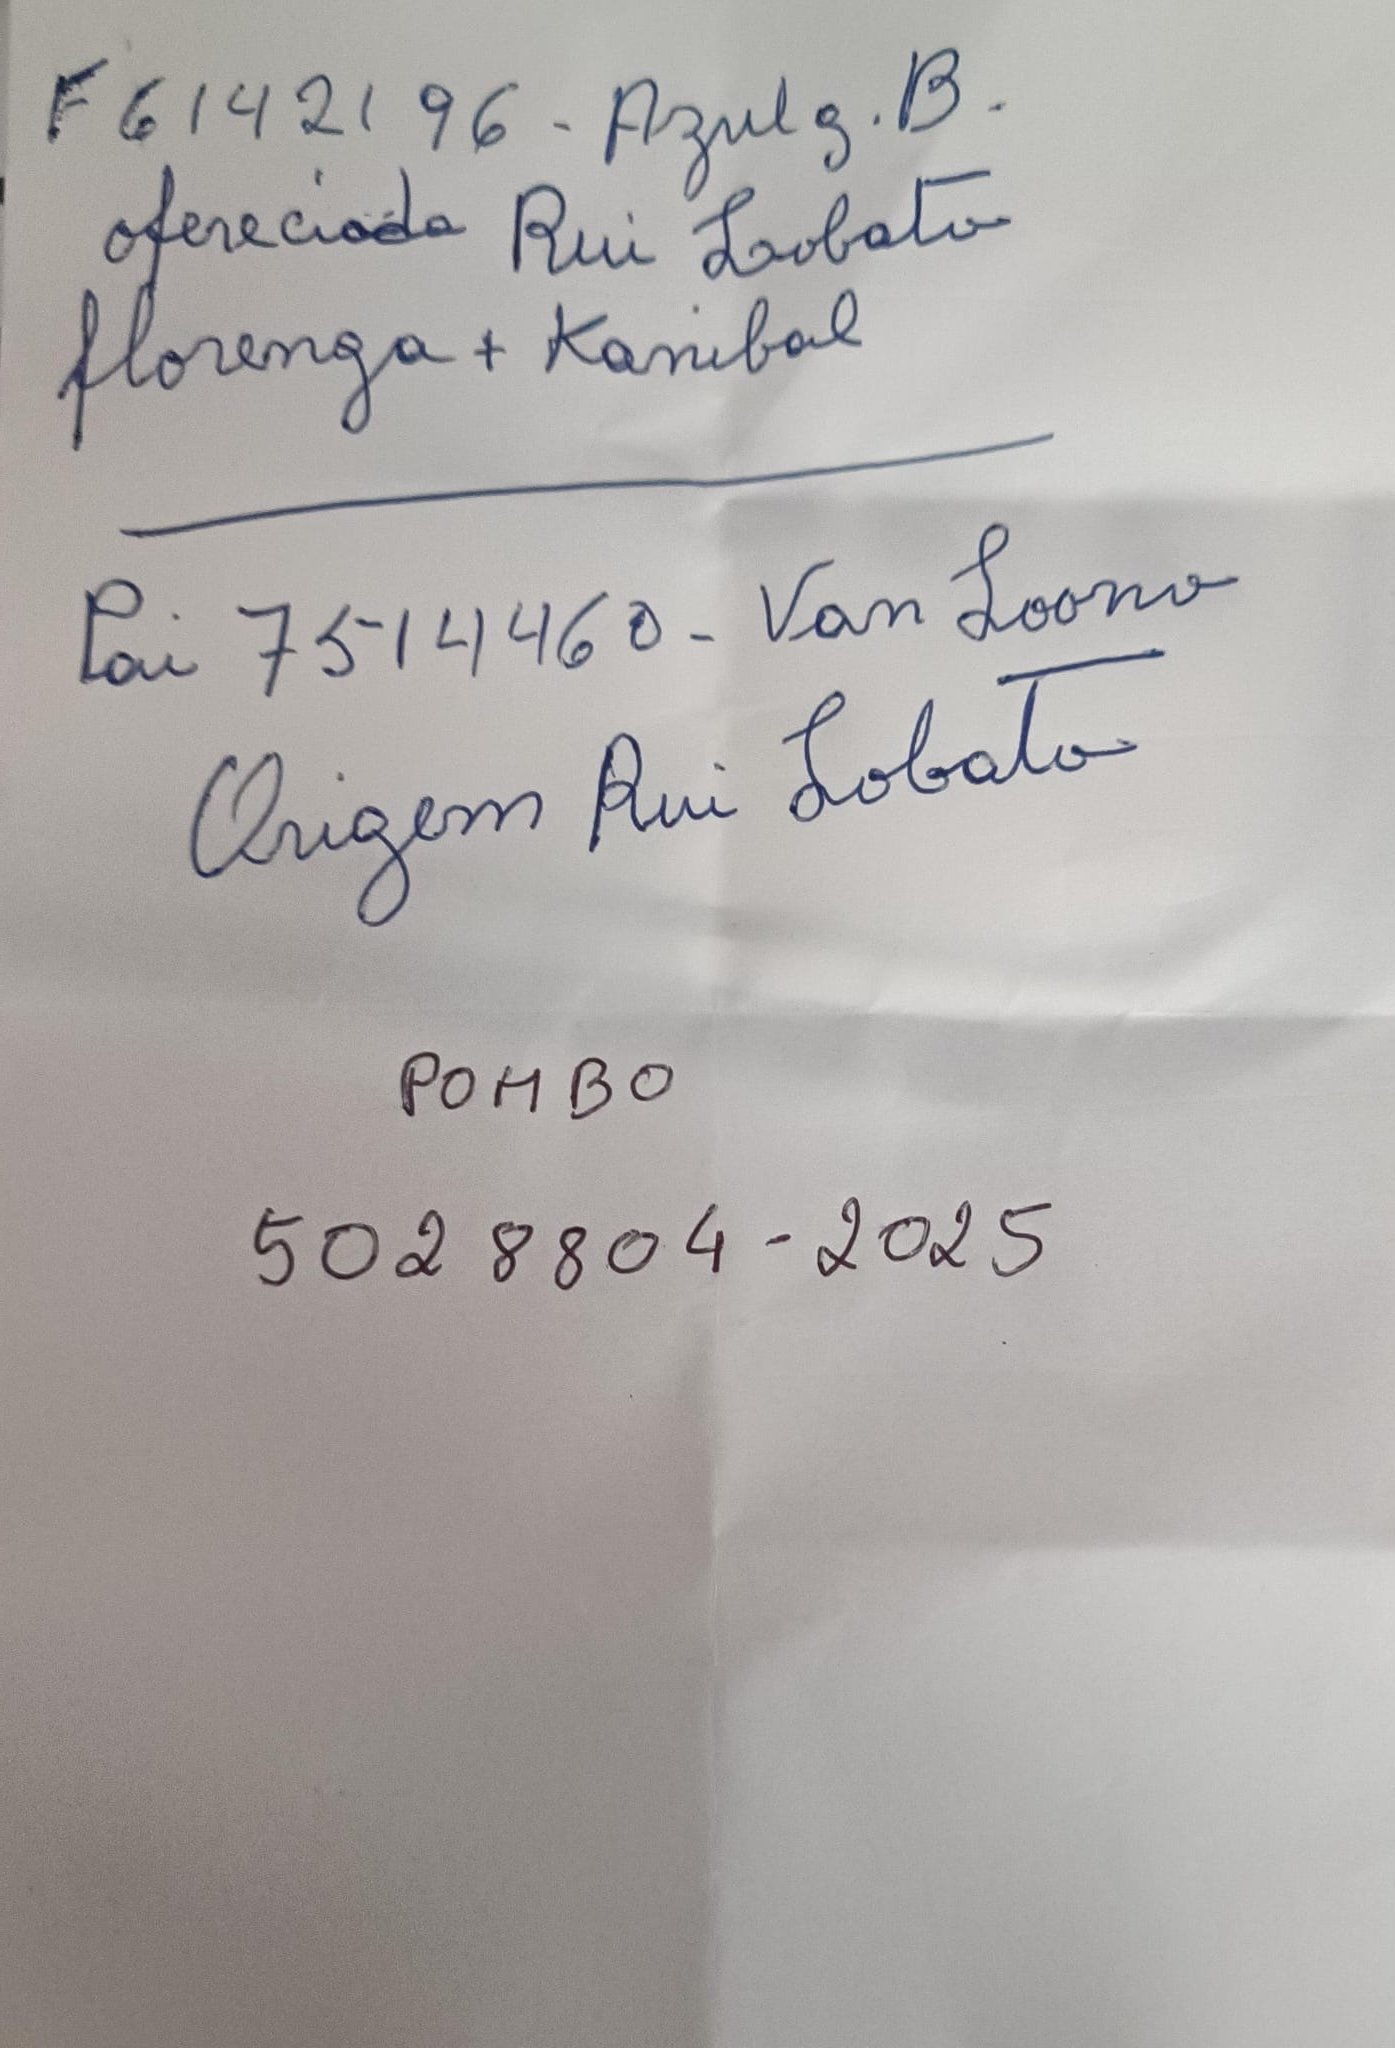 F 6142196 - Azul g. B.
ofereciada Rui Lobato
florenga + Kanibal
Pai 7514460 - Van Loono
Origem Rui Lobato
POMBO
5028804 - 2025